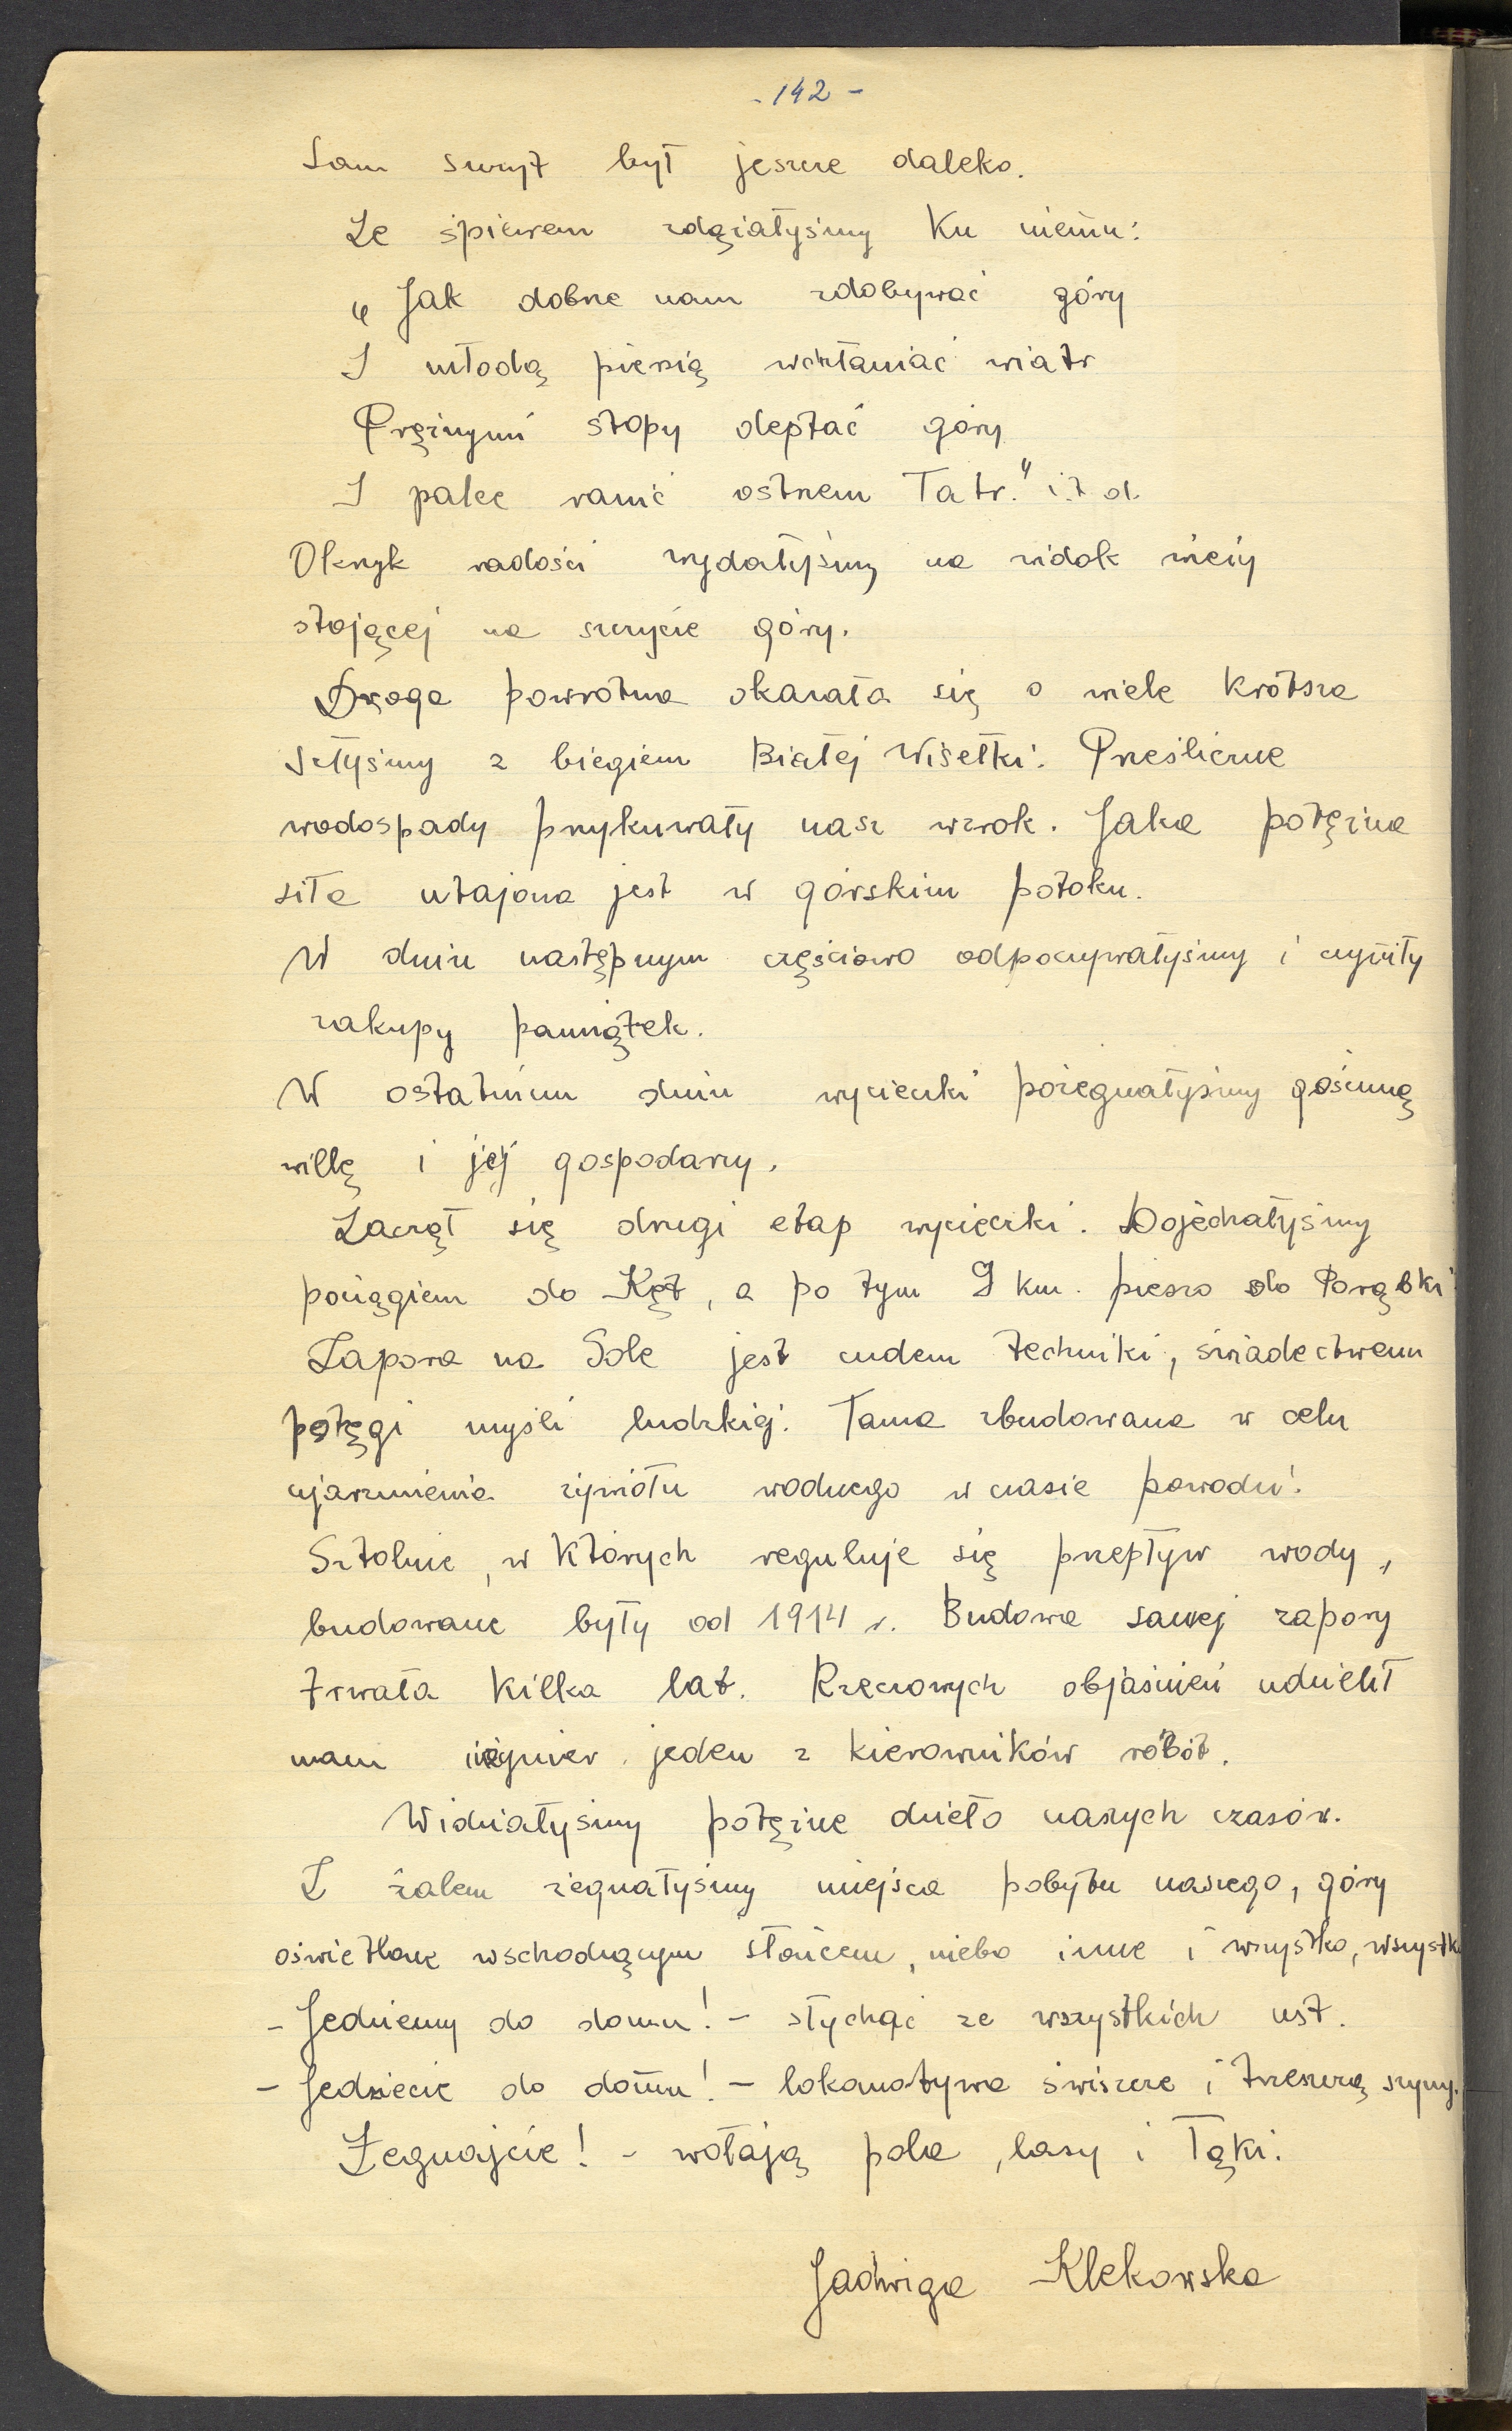 - 142 -
Sam szczyt był jeszcze daleko.
Ze śpiewem zdążałyśmy ku niemu:
„Jak dobrze nam zdobywać góry
I młodą piersią wchłaniać wiatr
Prężnymi stopy deptać góry
I palce ranić ostrzem Tatr." i.t.d.
Okrzyk radości wydałyśmy na widok wieży
stojącej na szczycie góry.
Droga powrotna okazała się o wiele krótsza
Szłyśmy z biegiem Białej Wisełki. Prześliczne
wodospady przykuwały nasz wzrok. Jaka potężna
siła utajona jest w górskim potoku.
W dniu następnym częściowo odpoczywałyśmy i czyniły
zakupy pamiątek.
W ostatnim dniu wycieczki pożegnałyśmy gościnną
willę i jej gospodarzy.
Zaczął się drugi etap wycieczki. Dojechałyśmy
pociągiem do Kęt, a po tym 9 km. pieszo do Porąbki.
Zapora na Sole jest cudem techniki, świadectwem
potęgi myśli ludzkiej. Tama zbudowana w celu
ujarzmienia żywiołu wodnego w czasie powodzi.
Sztolnie, w których reguluje się przepływ wody,
budowane były od 1914 r. Budowa samej zapory
trwała kilka lat. Rzeczowych objaśnień udzielił
nam inżynier jeden z kierowników robót.
Widziałyśmy potężne dzieło naszych czasów.
Z żalem żegnałyśmy miejsca pobytu naszego, góry
oświetlone wschodzącym słońcem, niebo inne i wszystko, wszystko
- Jedziemy do domu! - słychać ze wszystkich ust.
- Jedziecie do domu! - lokomotywa świszcze i trzeszczą szyny.
Żegnajcie! - wołają pola, lasy i łąki.
Jadwiga Klekowska